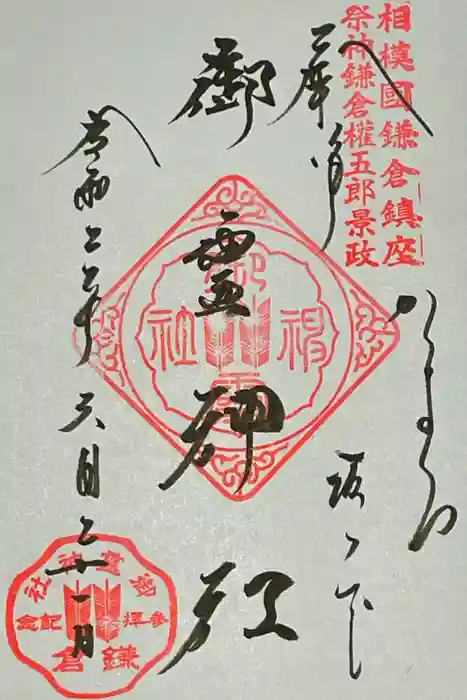 相模國鎌倉鎮座
祭神鎌倉權五郎景政
かまくら
坂ノ下
御霊神社
令和二年六月二十一日
御靈神社
御靈神社
参拝記念
鎌倉